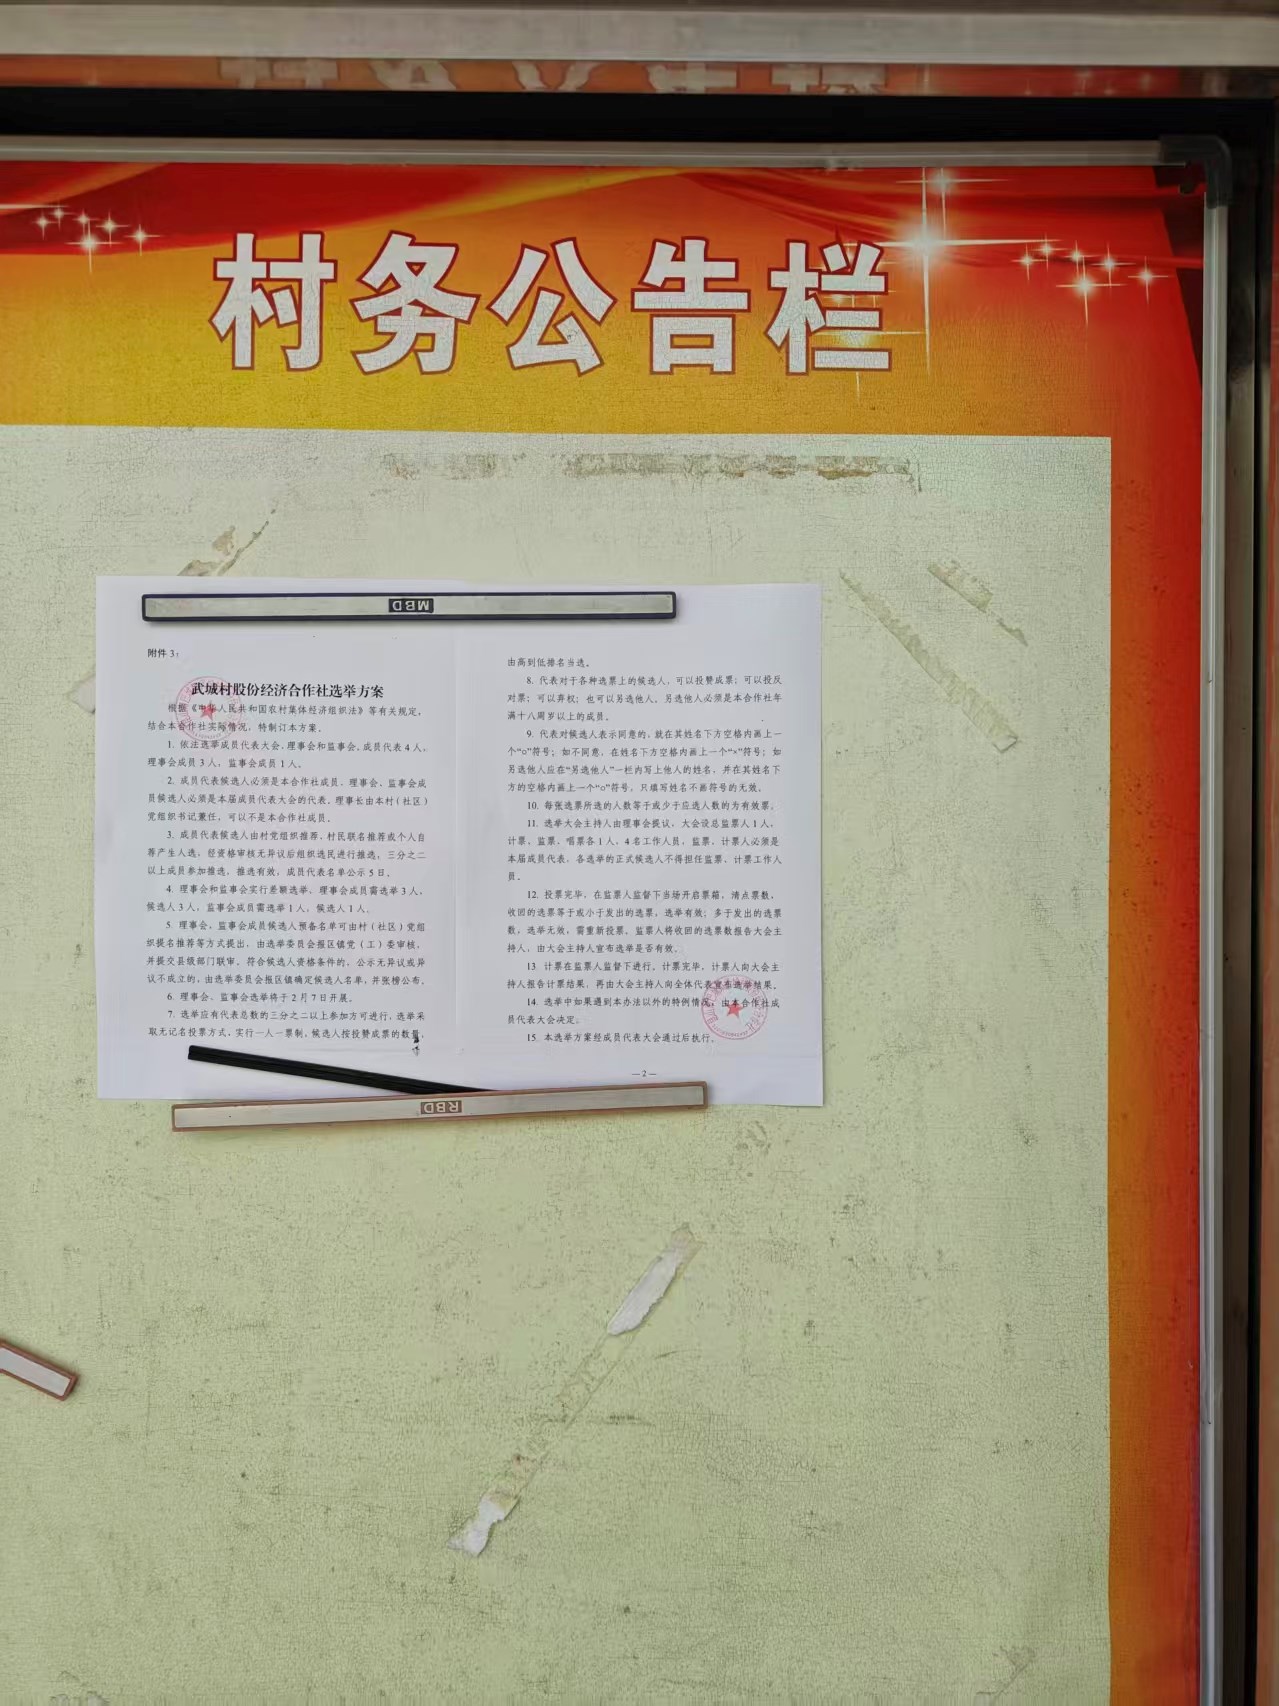 村务公告栏
MBD
附件 3:
武城村股份经济合作社选举方案
根据《中华人民共和国农村集体经济组织法》等有关规定，
结合本合作社实际情况，特制订本方案。
1. 依法选举成员代表大会、理事会和监事会。成员代表 4 人，
理事会成员 3 人，监事会成员 1 人。
2. 成员代表候选人必须是本合作社成员，理事会、监事会成
员候选人必须是本届成员代表大会的代表。理事长由本村（社区）
党组织书记兼任，可以不是本合作社成员。
3. 成员代表候选人由村党组织推荐、村民联名推荐或个人自
荐产生人选，经资格审核无异议后组织选民进行推选，三分之二
以上成员参加推选，推选有效，成员代表名单公示 5 日。
4. 理事会和监事会实行差额选举，理事会成员需选举 3 人，
候选人 3 人，监事会成员需选举 1 人，候选人 1 人。
5. 理事会、监事会成员候选人预备名单可由村（社区）党组
织提名推荐等方式提出，由选举委员会报区镇党（工）委审核，
并提交县级部门联审，符合候选人资格条件的，公示无异议或异
议不成立的，由选举委员会报区镇确定候选人名单，并张榜公布。
6. 理事会、监事会选举将于 2 月 7 日开展。
7. 选举应有代表总数的三分之二以上参加方可进行，选举采
取无记名投票方式，实行一人一票制，候选人按投赞成票的数量，
由高到低排名当选。
8. 代表对于各种选票上的候选人，可以投赞成票；可以投反
对票；可以弃权；也可以另选他人。另选他人必须是本合作社年
满十八周岁以上的成员。
9. 代表对候选人表示同意的，就在其姓名下方空格内画上一
个“○”符号；如不同意，在姓名下方空格内画上一个“×”符号；如
另选他人应在“另选他人”一栏内写上他人的姓名，并在其姓名下
方的空格内画上一个“○”符号，只填写姓名不画符号的无效。
10. 每张选票所选的人数等于或少于应选人数的为有效票。
11. 选举大会主持人由理事会提议，大会设总监票人 1 人，
计票、监票、唱票各 1 人，4 名工作人员，监票、计票人必须是
本届成员代表，各选举的正式候选人不得担任监票、计票工作人
员。
12. 投票完毕，在监票人监督下当场开启票箱，清点票数，
收回的选票等于或小于发出的选票，选举有效；多于发出的选票
数，选举无效，需重新投票。监票人将收回的选票数报告大会主
持人，由大会主持人宣布选举是否有效。
13. 计票在监票人监督下进行。计票完毕，计票人向大会主
持人报告计票结果，再由大会主持人向全体代表宣布选举结果。
14. 选举中如果遇到本办法以外的特例情况，由本合作社成
员代表大会决定。
15. 本选举方案经成员代表大会通过后执行。
—2—
RBD